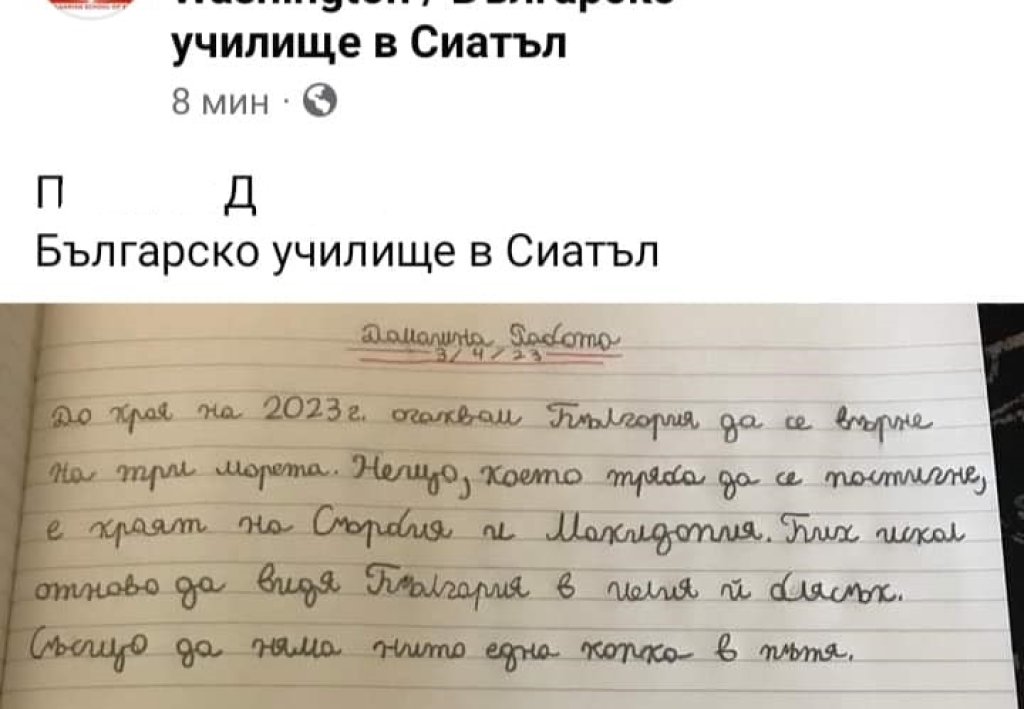 Washington / Българско
училище в Сиатъл
8 мин ·
П Д
Българско училище в Сиатъл
Домашна Работа
3/4/23
До края на 2023г. очаквам България да се върне
на три морета. Нещо, което трябва да се постигне,
е краят на Сърбия и Македония. Бих искал
отново да видя България в целия ѝ блясък.
Също да няма нито една копка в пътя.